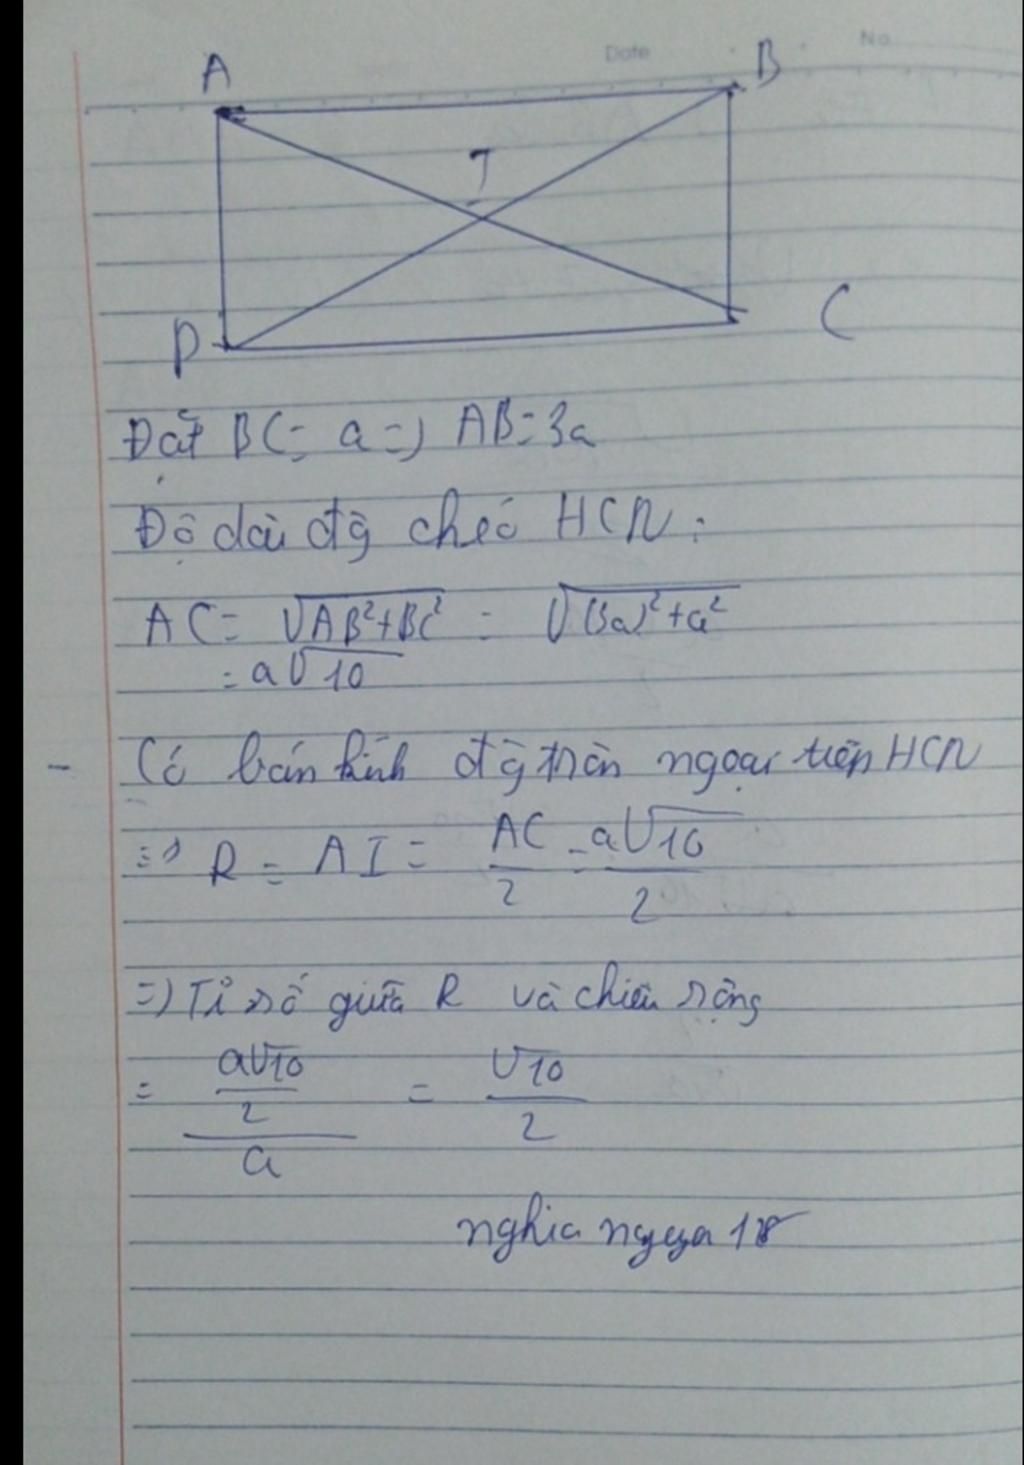 Date
No
A
B
I
D
C
Đặt BC = a => AB = 3a
Độ dài đg chéo HCN :
AC = √AB²+BC² = √(3a)²+a²
= a√10
- Có bán kính đg tròn ngoại tiếp HCN
=> R = AI = AC/2 = a√10/2
=> Tỉ số giữa R và chiều rộng
= (a√10/2)/a = √10/2